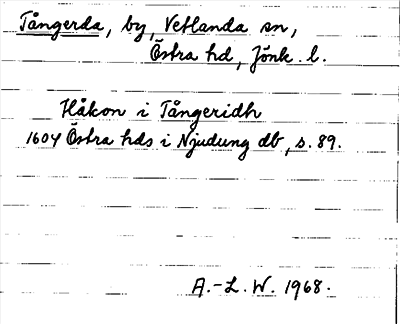 Tångerda, by, Vetlanda sn,
Östra hd, Jönk. l.
Håkon i Tångeridh
1604 Östra hds i Njudung db, s. 89.
A.-L. W. 1968.